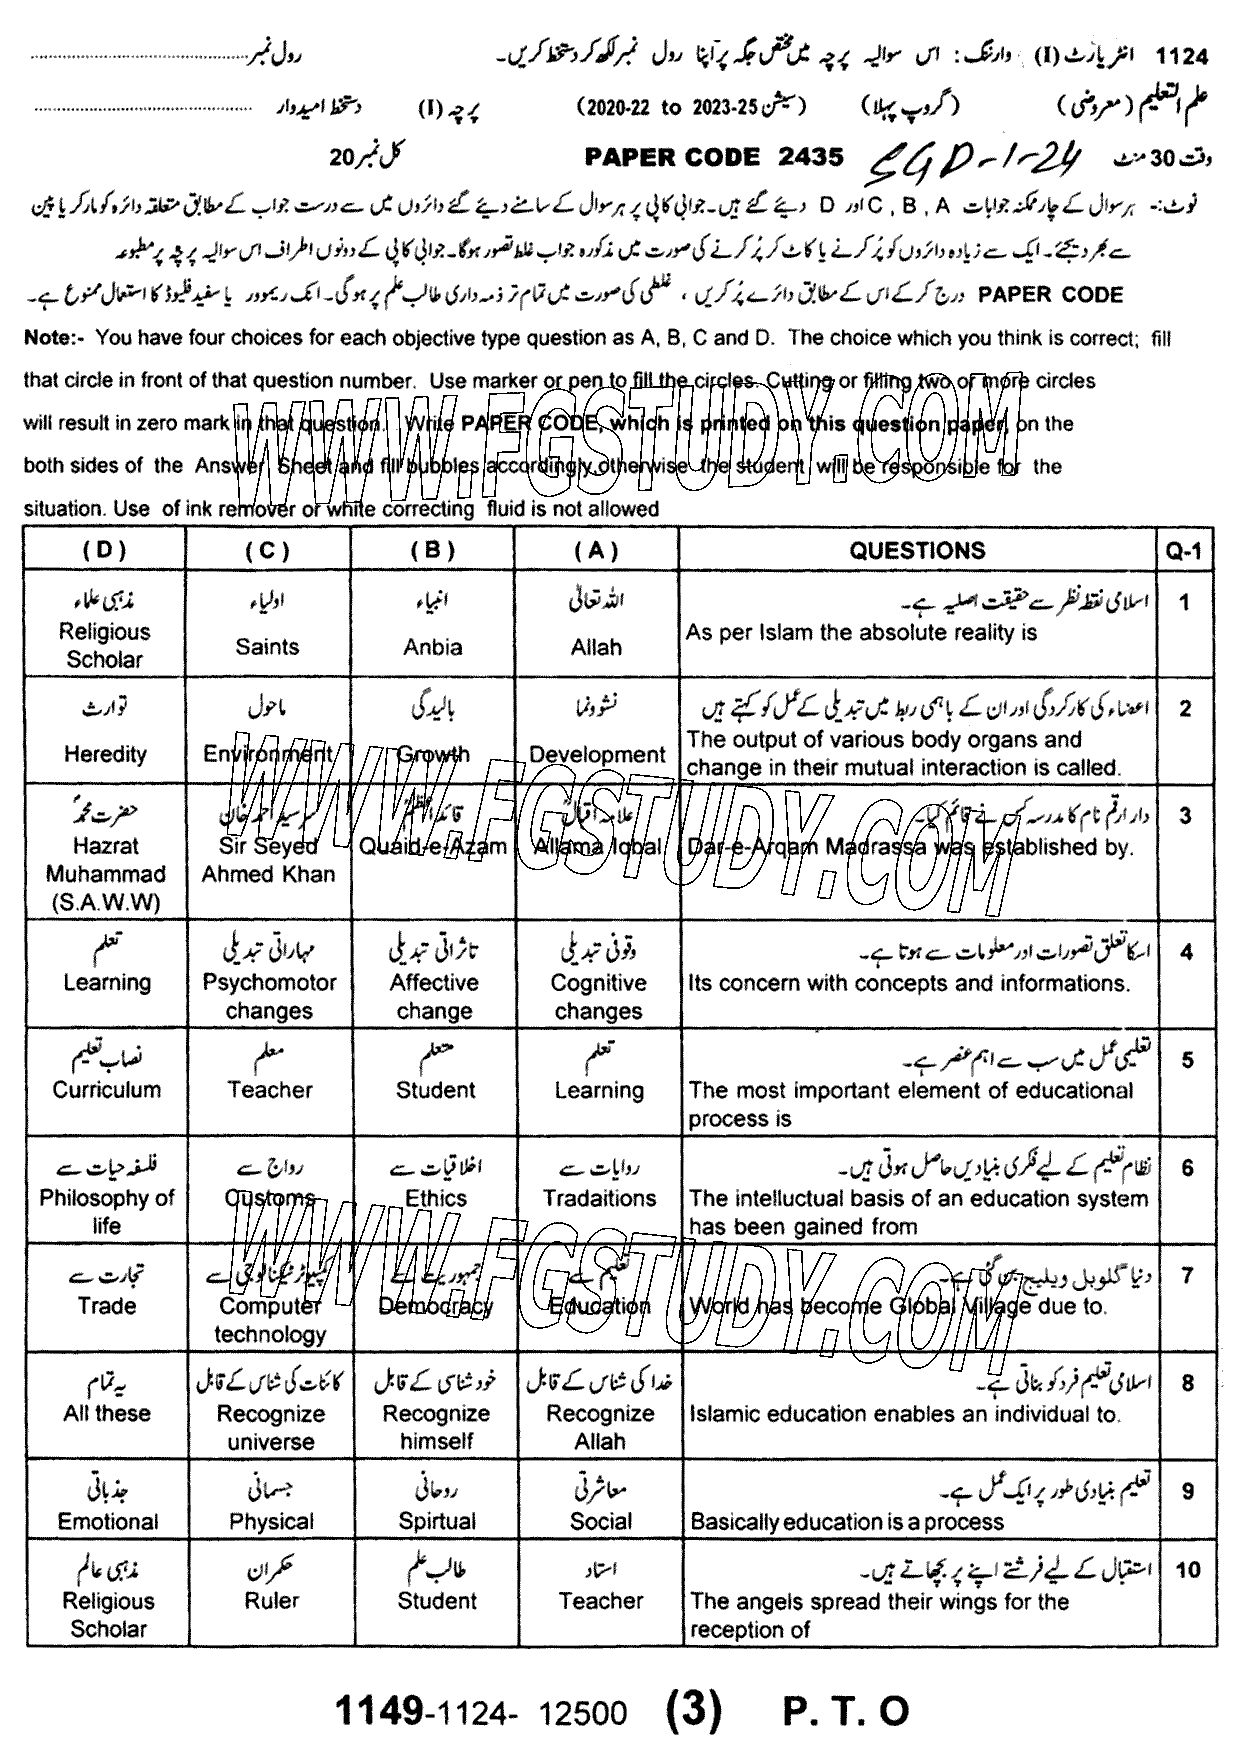 1124 انٹر پارٹ (I) وارننگ: اس سوالیہ پرچہ میں مختص جگہ پر اپنا رول نمبر لکھ کر دستخط کریں۔ رول نمبر
علم التعلیم (معروضی) (گروپ پہلا) (سیشن 2020-22 to 2023-25) پرچہ (I) دستخط امیدوار
وقت 30 منٹ SGD-1-24 PAPER CODE 2435 کل نمبر 20
نوٹ:- ہر سوال کے چار ممکنہ جوابات A , B , C اور D دیئے گئے ہیں۔ جوابی کاپی پر ہر سوال کے سامنے دیئے گئے دائروں میں سے درست جواب کے مطابق متعلقہ دائرہ کو مارکر یا پین
سے بھر دیجئے۔ ایک سے زیادہ دائروں کو پُر کرنے یا کاٹ کر پُر کرنے کی صورت میں مذکورہ جواب غلط تصور ہوگا۔ جوابی کاپی کے دونوں اطراف اس سوالیہ پرچہ پر مطبوعہ
PAPER CODE درج کر کے اس کے مطابق دائرے پُر کریں ، غلطی کی صورت میں تمام تر ذمہ داری طالب علم پر ہوگی۔ انک ریموور یا سفید فلیوڈ کا استعمال ممنوع ہے۔
Note:- You have four choices for each objective type question as A, B, C and D. The choice which you think is correct; fill
that circle in front of that question number. Use marker or pen to fill the circles. Cutting or filling two or more circles
will result in zero mark in that question. Write PAPER CODE, which is printed on this question paper, on the
both sides of the Answer Sheet and fill bubbles accordingly, otherwise the student will be responsible for the
situation. Use of ink remover or white correcting fluid is not allowed
WWW.FGSTUDY.COM
( D ) ( C ) ( B ) ( A ) QUESTIONS Q-1
1 اسلامی نقطہ نظر سے حقیقت اصلیہ ہے۔ اللہ تعالیٰ انبیاء اولیاء مذہبی علماء
As per Islam the absolute reality is
Allah Anbia Saints Religious
Scholar
2 اعضاء کی کارکردگی اور ان کے باہمی ربط میں تبدیلی کے عمل کو کہتے ہیں نشوونما بالیدگی ماحول توارث
The output of various body organs and
change in their mutual interaction is called.
Development Growth Environment Heredity
WWW.FGSTUDY.COM
3 دار ارقم نام کا مدرسہ کس نے قائم کیا۔ علامہ اقبالؒ قائد اعظمؒ سر سید احمد خان حضرت محمدؐ
Dar-e-Arqam Madrassa was established by.
Allama Iqbal Quaid-e-Azam Sir Seyed Hazrat
Ahmed Khan Muhammad
(S.A.W.W)
4 اسکا تعلق تصورات اور معلومات سے ہوتا ہے۔ وقوفی تبدیلی تاثراتی تبدیلی مہاراتی تبدیلی تعلم
Its concern with concepts and informations.
Cognitive Affective Psychomotor Learning
changes change changes
5 تعلیمی عمل میں سب سے اہم عنصر ہے۔ تعلم متعلم معلم نصاب تعلیم
The most important element of educational
process is
Learning Student Teacher Curriculum
6 نظام تعلیم کے لیے فکری بنیادیں حاصل ہوتی ہیں۔ روایات سے اخلاقیات سے رواج سے فلسفہ حیات سے
The intelluctual basis of an education system
has been gained from
Tradaitions Ethics Customs Philosophy of
life
WWW.FGSTUDY.COM
7 دنیا گلوبل ویلیج بن گئی ہے۔ تعلیم سے جمہوریت سے کمپیوٹر ٹیکنالوجی سے تجارت سے
World has become Global Village due to.
Education Democracy Computer Trade
technology
8 اسلامی تعلیم فرد کو بناتی ہے۔ خدا کی شناس کے قابل خود شناسی کے قابل کائنات کی شناس کے قابل یہ تمام
Islamic education enables an individual to.
Recognize Recognize Recognize All these
Allah himself universe
9 تعلیم بنیادی طور پر ایک عمل ہے۔ معاشرتی روحانی جسمانی جذباتی
Basically education is a process
Social Spirtual Physical Emotional
10 استقبال کے لیے فرشتے اپنے پر بچھاتے ہیں۔ استاد طالب علم حکمران مذہبی عالم
The angels spread their wings for the
reception of
Teacher Student Ruler Religious
Scholar
1149-1124- 12500 (3) P. T. O